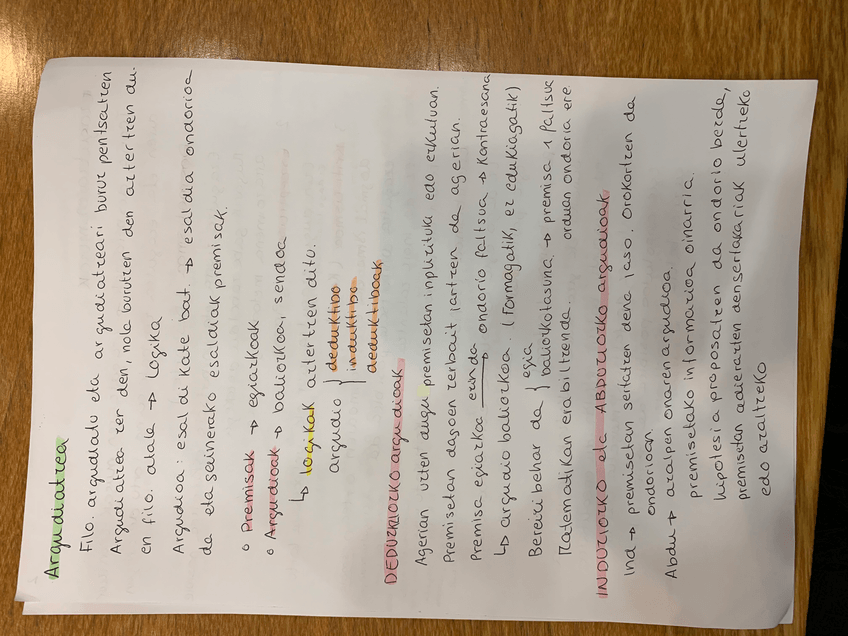 Argudiatzea
Filo. argudiatu eta argudiatzeari buruz pentsatzen
Argudiatzea zer den, nola burutzen den aztertzen du.
en filo. atala → Logika
Argudioa: esaldi kate bat. → esaldia ondorioa
da eta gainerako esaldiak premisak.
○ Premisak → egiazkoak
○ Argudioak → baliozkoa, sendoa
↳ logikak aztertzen ditu.
argudio { deduktibo
induktibo
deduktiboak
DEDUKZIOZKO argudioak
Agerian uzten dugu premisetan inplizituki edo ezkutuan.
Premisetan dagoen zerbait jartzen da agerian.
Premisa egiazkoa ezinda → ondorio faltsua → Kontraesana
↳ argudio baliozkoa. (Formagatik, ez edukiagatik)
Bereizi behar da { egia
baliozkotasuna. → premisa 1 faltsua
orduan ondorioa ere
Matematikan erabiltzenda.
INDUZIOZKO eta ABDUZIOZKO argudioak
Ind → premisetan sertatzen dena jaso. Orokortzen da
ondorioan.
Abdu → azalpen onaren argudioa.
premisetako informazioa oinarria.
hipotesia proposatzen da ondorio bezala,
premisetan adierazten den sertakariak ulertzeko
edo azaltzeko